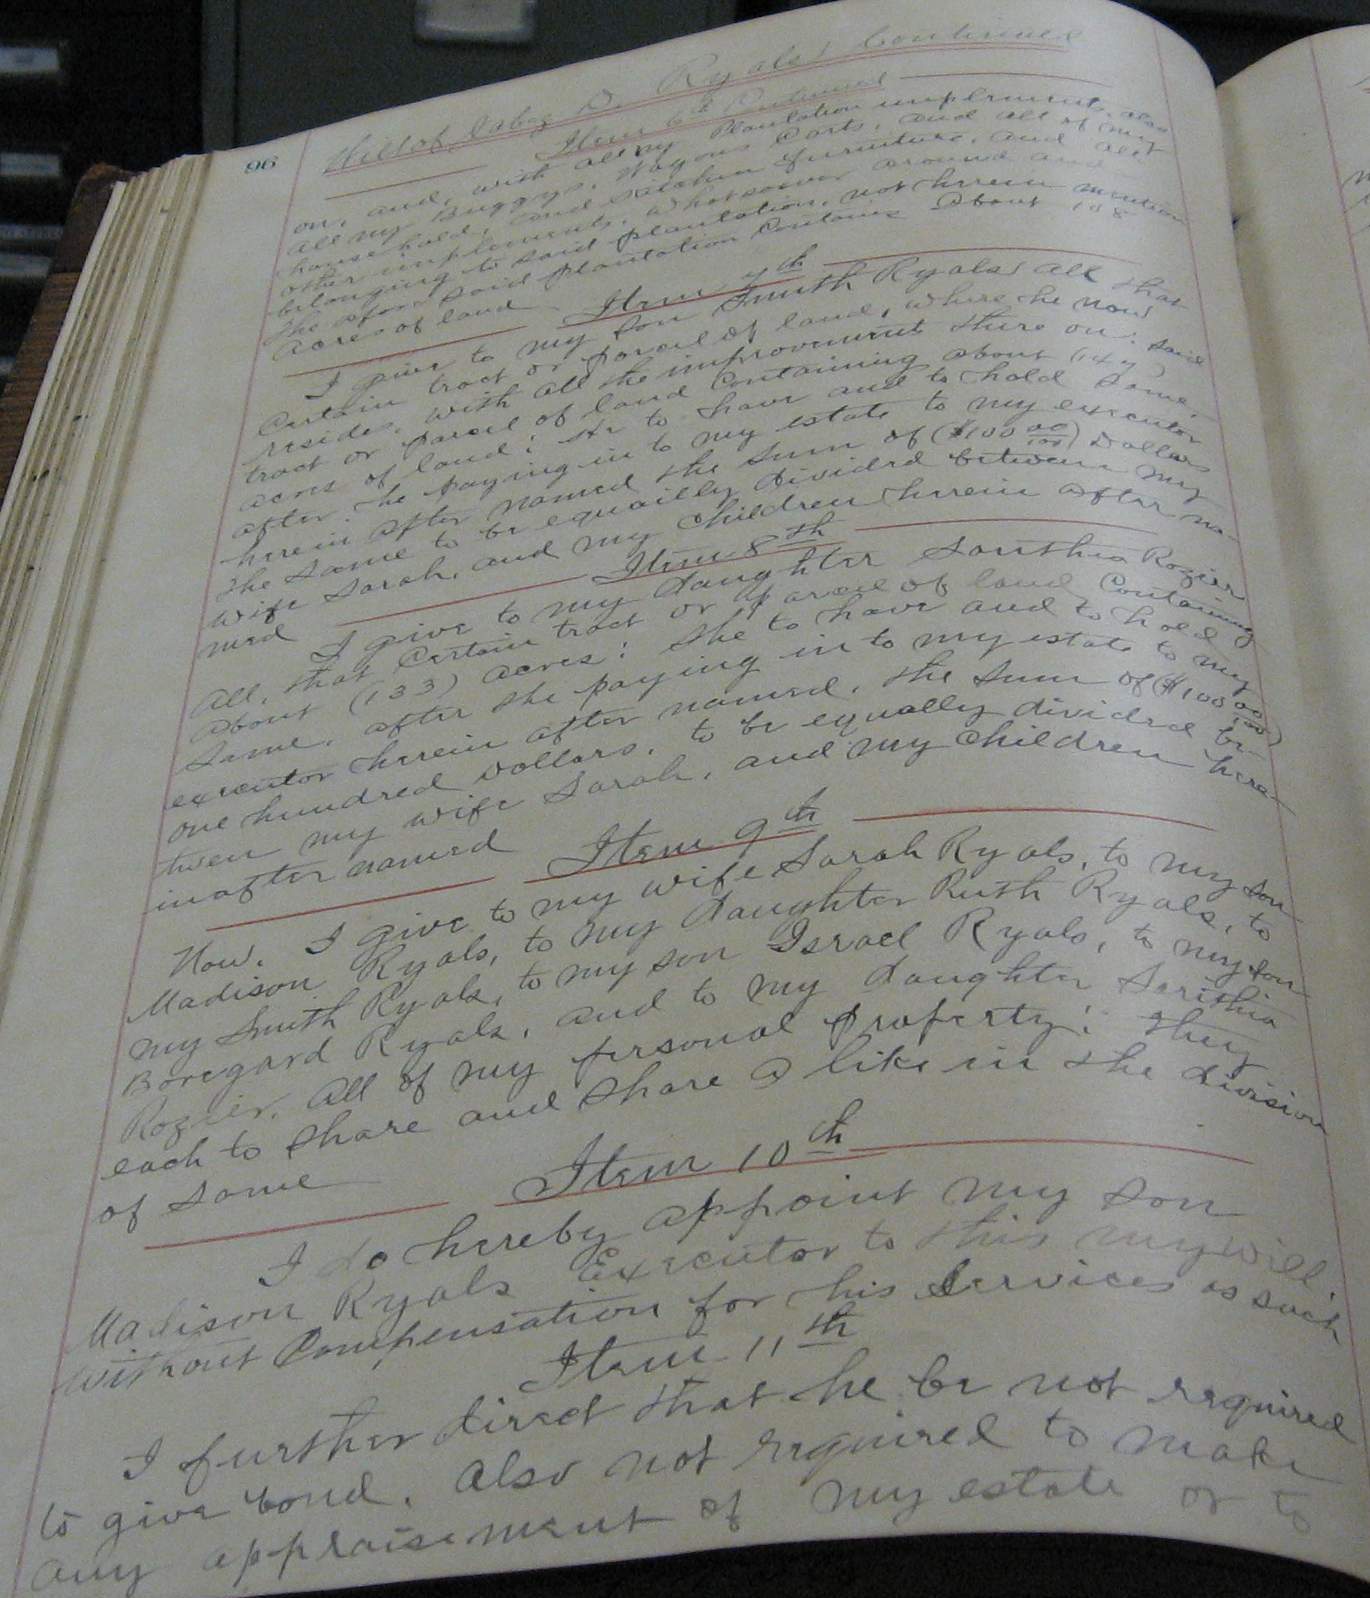 96
Will of Jabez D. Ryals Continued
Item 6th Continued
on, and, with all my Plantation implements, also
all my Buggys, Wagons Carts, and all of my
house hold, and Kitchen furniture, and all
other implements, whatsoever around and
belonging to said plantation, not herein mention
the afore said plantation Contains About 108
acres of land
Item 7th
I give to my son Smith Ryals, all that
Certain tract or parcel of land, where he now
resides, with all the improvements there on, said
tract or parcel of land Containing about (147)
acres of land; He to have and to hold same,
after he paying in to my estate to my executor
herein after named the sum of ($100 00/100) Dollars
the same to be equailly divided between my
wife Sarah, and my Children herein after na-
med
Item 8th
I give to my daughter Sarithia Rozier
all, that Certain tract or parcel of land Containing
about (133) acres; She to have and to hold
same, after she paying in to my estate to my
executor herein after named, the sum of ($100 00/100)
one hundred Dollars, to be equally divided be-
tween my wife Sarah, and my Children here-
inafter named
Item 9th
Now, I give to my wife Sarah Ryals, to my son
Madison Ryals, to my daughter Ruth Ryals, to
my Smith Ryals, to my son Israel Ryals, to my son
Boregard Ryals, and to my daughter Sarithia
Rozier, all of my personal property; They
each to share and share a like in the division
of same
Item 10th
I do hereby appoint my son
Madison Ryals Executor to this my will
without Compensation for his Services as such
Item 11th
I further direct that he be not required
to give bond, Also not required to make
any appraisement of my estate or to